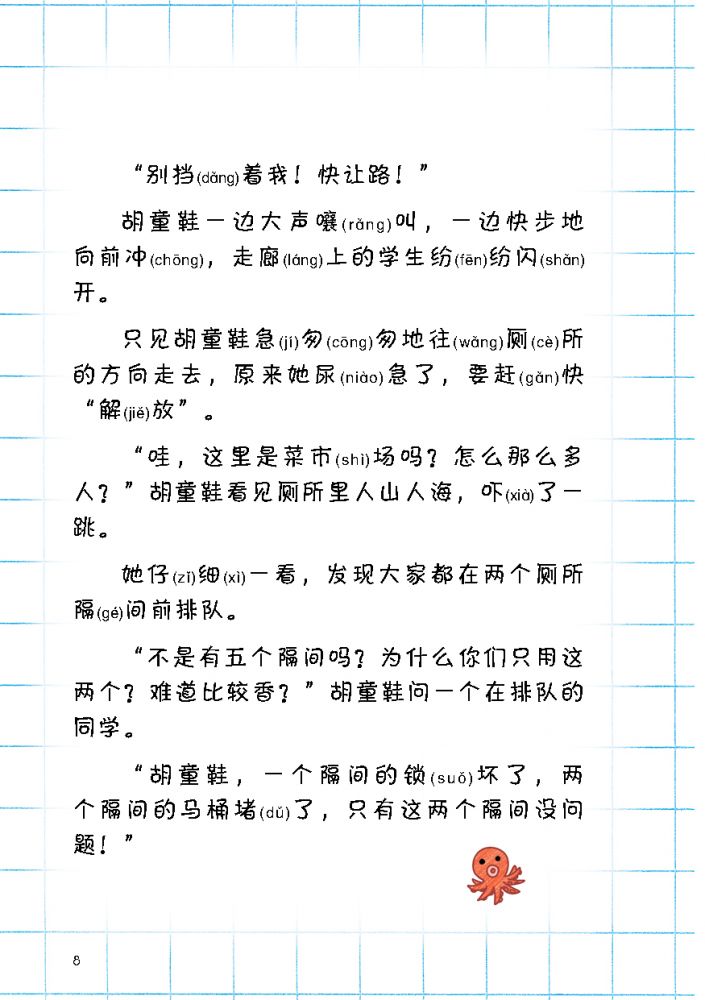 “别挡(dǎng)着我！快让路！”
胡童鞋一边大声嚷(rǎng)叫，一边快步地
向前冲(chōng)，走廊(láng)上的学生纷(fēn)纷闪(shǎn)
开。
只见胡童鞋急(jí)匆(cōng)匆地往(wǎng)厕(cè)所
的方向走去，原来她尿(niào)急了，要赶(gǎn)快
“解(jiě)放”。
“哇，这里是菜市(shì)场吗？怎么那么多
人？”胡童鞋看见厕所里人山人海，吓(xià)了一
跳。
她仔(zǐ)细(xì)一看，发现大家都在两个厕所
隔(gé)间前排队。
“不是有五个隔间吗？为什么你们只用这
两个？难道比较香？”胡童鞋问一个在排队的
同学。
“胡童鞋，一个隔间的锁(suǒ)坏了，两
个隔间的马桶堵(dǔ)了，只有这两个隔间没问
题！”
8